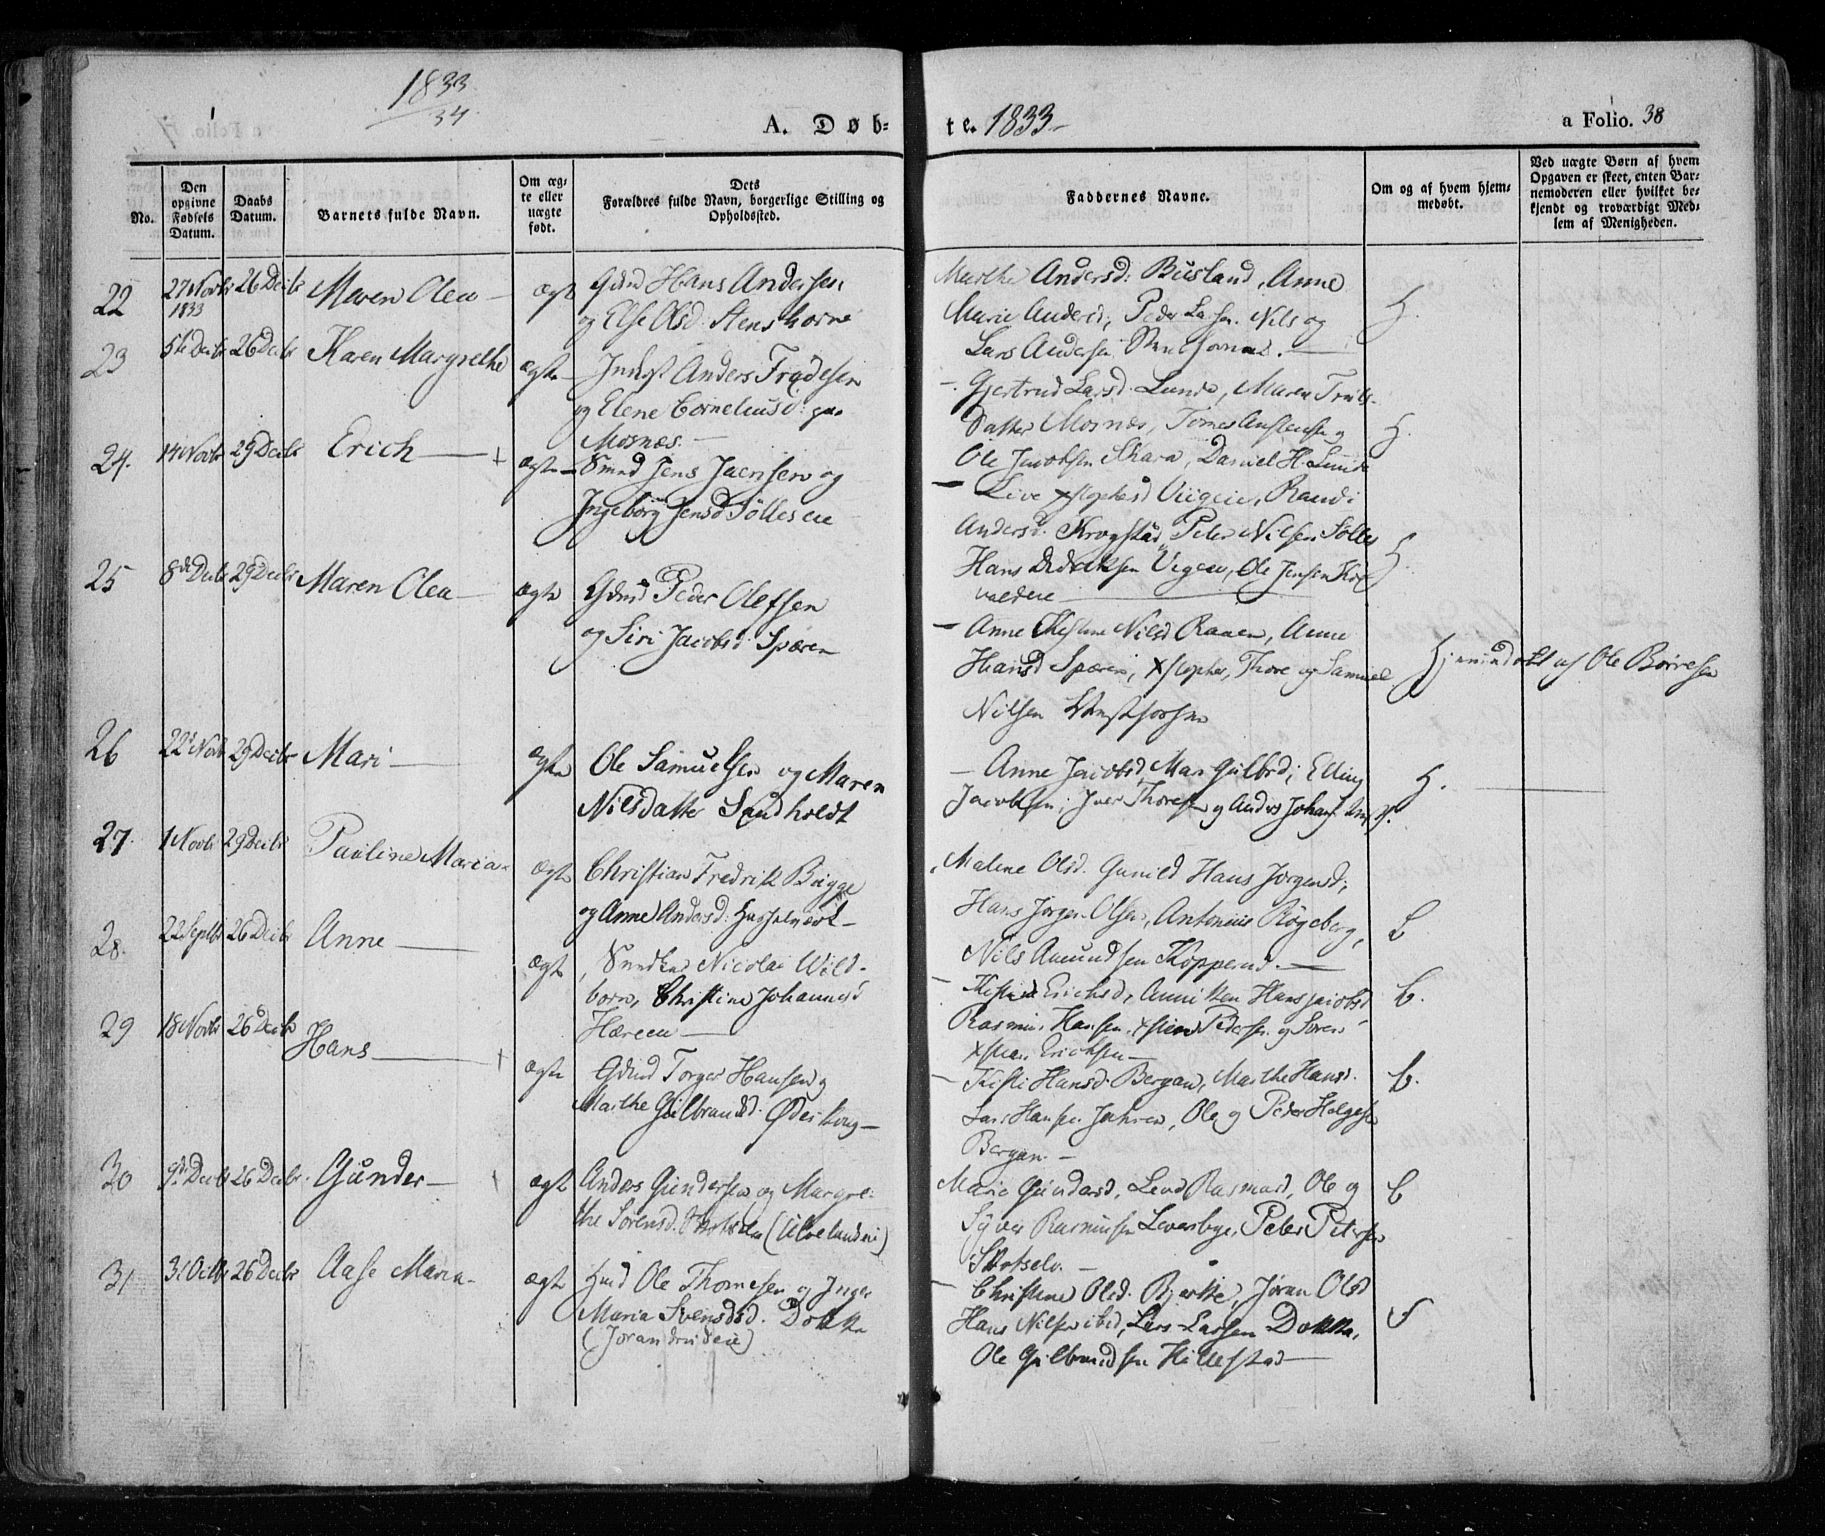 1833
34
A. Døb-
te. 1833
a Folio. 38
No.
Den opgivne Fødsels Datum.
Daabs Datum.
Barnets fulde Navn.
Om ægte eller uægte født.
Dets Forældres fulde Navn, borgerlige Stilling og Opholdssted.
Faddernes Navne.
Om og af hvem hjemmedøbt.
Ved uægte Børn af hvem Opgaven er skeet, enten Barnemoderen eller hvilket bekjendt og troværdigt Medlem af Menigheden.
22 27 Novbr 1833 26 Decbr Maren Olea ægte Gdmd Hans Andersen
og Else Olsd. Stenshorne
Marthe Andersd: Busland, Anne
Marie Andersd; Peder Larsen, Nils og
Lars Andersen
H.
23 5te Decbr 26 Decbr Karen Margrethe ægte Anders
og Elene Corneliusd: paa
Mosnæs.
Gjertrud Larsd. Lunde, Maren
Datter Mosnæs,
Ole Jacobsen Skara, Daniel H. Lunde
H.
24. 14 Novbr 29 Decbr Erich + ægte Smd Jens Jacnsen og
Ingeborg Jensd Sølleseie
Live xstophersd Vigeie, Randi
Andersd. Krogstad, Peder Nilsen Sølles
Hans Didriksen Vigen, Ole Jensen
valdeie
H.
25 8de Decbr 29 Decbr Maren Olea ægte Gdmd Peder Olefsen
og Siri Jacobsd Spæren
Anne Nilsd Raaen, Anne
Hansd Spæren, xstopher, Thore og Samuel
Nilsen
Hjemmedøbt af Ole Børresen
26 22 Novbr 29 Decbr Mari ægte Ole Samuelsen og Maren
Nilsdatter Sandholdt
Anne Jacobsd, Mar. Gulbrd; Elling
Jacobsen; Iver Thoresen og Anders Johans.
H.
27. 1 Novbr 29 Decbr Pauline Maria ægte Christian Fredrik Brigge
og Anne Andersd:
Malene Olsd. Gunild Hans Jørgensd;
Hans Jørgen Olsen, Antonius Røgeberg,
Nils Amundsen Kopperud.
28. 22 Septbr 26 Decbr Anne ægte Nicolai Wild-
born, Christine Johannesd
Hæreen
Erichsd, Hans Jacobsd
Rasmus Hansen, xstian Pedersen og Søren
xstian Erichsen
29 18 Novbr 26 Decbr Hans + ægte Gdmd Torger Hansen og
Marthe Gulbrandsd. Ødeskoug
Kisti Hansd. Bergan, Marthe Hansd.
Lars Hansen Jahren, Ole og Peder Helgesen
Bergan.
30 9de Decbr 26 Decbr. Gunder ægte Anders Gundersen og Margre-
the Sørensd. (Ulvelandeie)
Marie Gundersd, Rasmusd, Ole og
Syver Rasmusen Leversbye, Peter Petersen
Skotselv.
31 31 Octbr 26 Decbr Aase Maria ægte Hmd Ole Thomesen og Inger
Maria Svendsd. Dokka
(Jorandrudeie)
Christine Olsd. Bjerke, Jøran Olsd
Hans Nilsen ibid, Lars Larsen Dokka,
Ole Gulbrandsen Hillestad